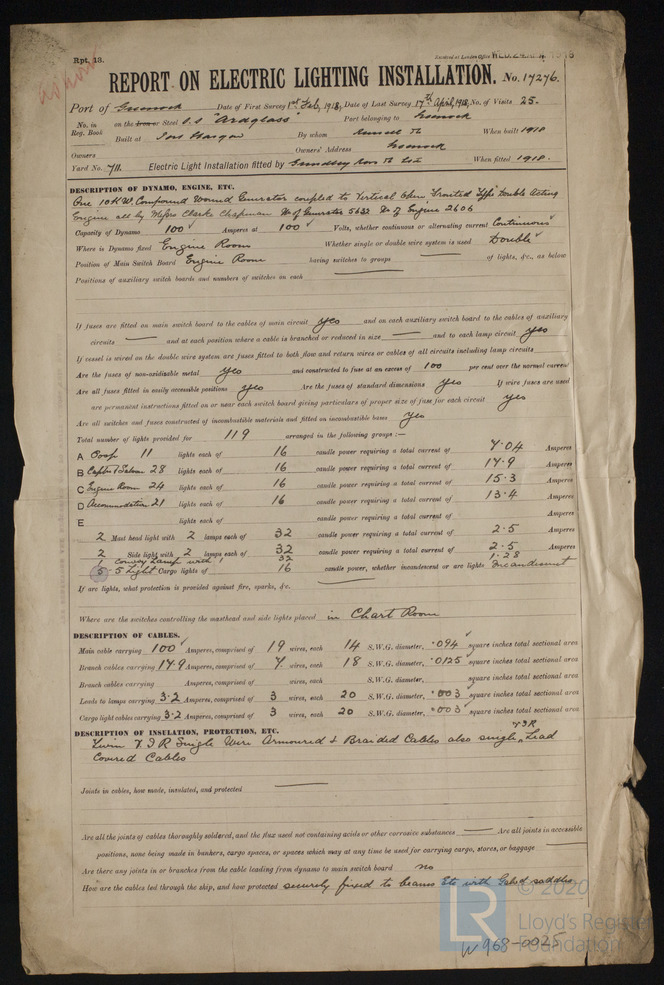 Rpt. 13.
REPORT ON ELECTRIC LIGHTING INSTALLATION. No. 17276.
Port of Greenock Date of First Survey 1st Feb, 1918, Date of Last Survey 17th April, 1918, No. of Visits 25.
No. in Reg. Book on the Iron or Steel S.S. "Ardglass" Port belonging to Greenock
Built at Port Glasgow By whom When built 1918
Owners Owners' Address Greenock
Yard No. 711. Electric Light Installation fitted by When fitted 1918.
DESCRIPTION OF DYNAMO, ENGINE, ETC.
One 10 K.W. Compound Wound Generator coupled to Vertical Open Fronted Type Double Acting
Engine all by Messrs Clarke Chapman No of Generator 5632 No of Engine 2606
Capacity of Dynamo 100 Amperes at 100 Volts, whether continuous or alternating current Continuous
Where is Dynamo fixed Engine Room Whether single or double wire system is used Double
Position of Main Switch Board Engine Room having switches to groups of lights, &c., as below
Positions of auxiliary switch boards and numbers of switches on each
If fuses are fitted on main switch board to the cables of main circuit yes and on each auxiliary switch board to the cables of auxiliary
circuits — and at each position where a cable is branched or reduced in size — and to each lamp circuit yes
If vessel is wired on the double wire system are fuses fitted to both flow and return wires or cables of all circuits including lamp circuits
Are the fuses of non-oxidizable metal yes and constructed to fuse at an excess of 100 per cent over the normal current
Are all fuses fitted in easily accessible positions yes Are the fuses of standard dimensions yes If wire fuses are used
are permanent instructions fitted on or near each switch board giving particulars of proper size of fuse for each circuit yes
Are all switches and fuses constructed of incombustible materials and fitted on incombustible bases yes
Total number of lights provided for 119 arranged in the following groups :—
A Poop 11 lights each of 16 candle power requiring a total current of 7.04 Amperes
B Capts & Saloon 28 lights each of 16 candle power requiring a total current of 17.9 Amperes
C Engine Room 24 lights each of 16 candle power requiring a total current of 15.3 Amperes
D Accommodation 21 lights each of 16 candle power requiring a total current of 13.4 Amperes
E lights each of candle power requiring a total current of Amperes
2 Mast head light with 2 lamps each of 32 candle power requiring a total current of 2.5 Amperes
2 Side light with 2 lamps each of 32 candle power requiring a total current of 2.5 Amperes
1 Convoy Lamp with 1 32 1.28
5 5 Light Cargo lights of 16 candle power, whether incandescent or arc lights Incandescent
If arc lights, what protection is provided against fire, sparks, &c. —
Where are the switches controlling the masthead and side lights placed in Chart Room
DESCRIPTION OF CABLES.
Main cable carrying 100 Amperes, comprised of 19 wires, each 14 S.W.G. diameter, .094 square inches total sectional area
Branch cables carrying 17.9 Amperes, comprised of 7 wires, each 18 S.W.G. diameter, .0125 square inches total sectional area
Branch cables carrying Amperes, comprised of wires, each S.W.G. diameter, square inches total sectional area
Leads to lamps carrying 3.2 Amperes, comprised of 3 wires, each 20 S.W.G. diameter, .003 square inches total sectional area
Cargo light cables carrying 3.2 Amperes, comprised of 3 wires, each 20 S.W.G. diameter, .003 square inches total sectional area
DESCRIPTION OF INSULATION, PROTECTION, ETC.
Twin V.I.R Single Wire Armoured & Braided Cables also single V.I.R Lead
Covered Cables
Joints in cables, how made, insulated, and protected —
Are all the joints of cables thoroughly soldered, and the flux used not containing acids or other corrosive substances — Are all joints in accessible
positions, none being made in bunkers, cargo spaces, or spaces which may at any time be used for carrying cargo, stores, or baggage —
Are there any joints in or branches from the cable leading from dynamo to main switch board no
How are the cables led through the ship, and how protected securely fixed to beams Etc with Galvd saddles
LR
© 2020
Lloyd's Register
Foundation
W968-0025